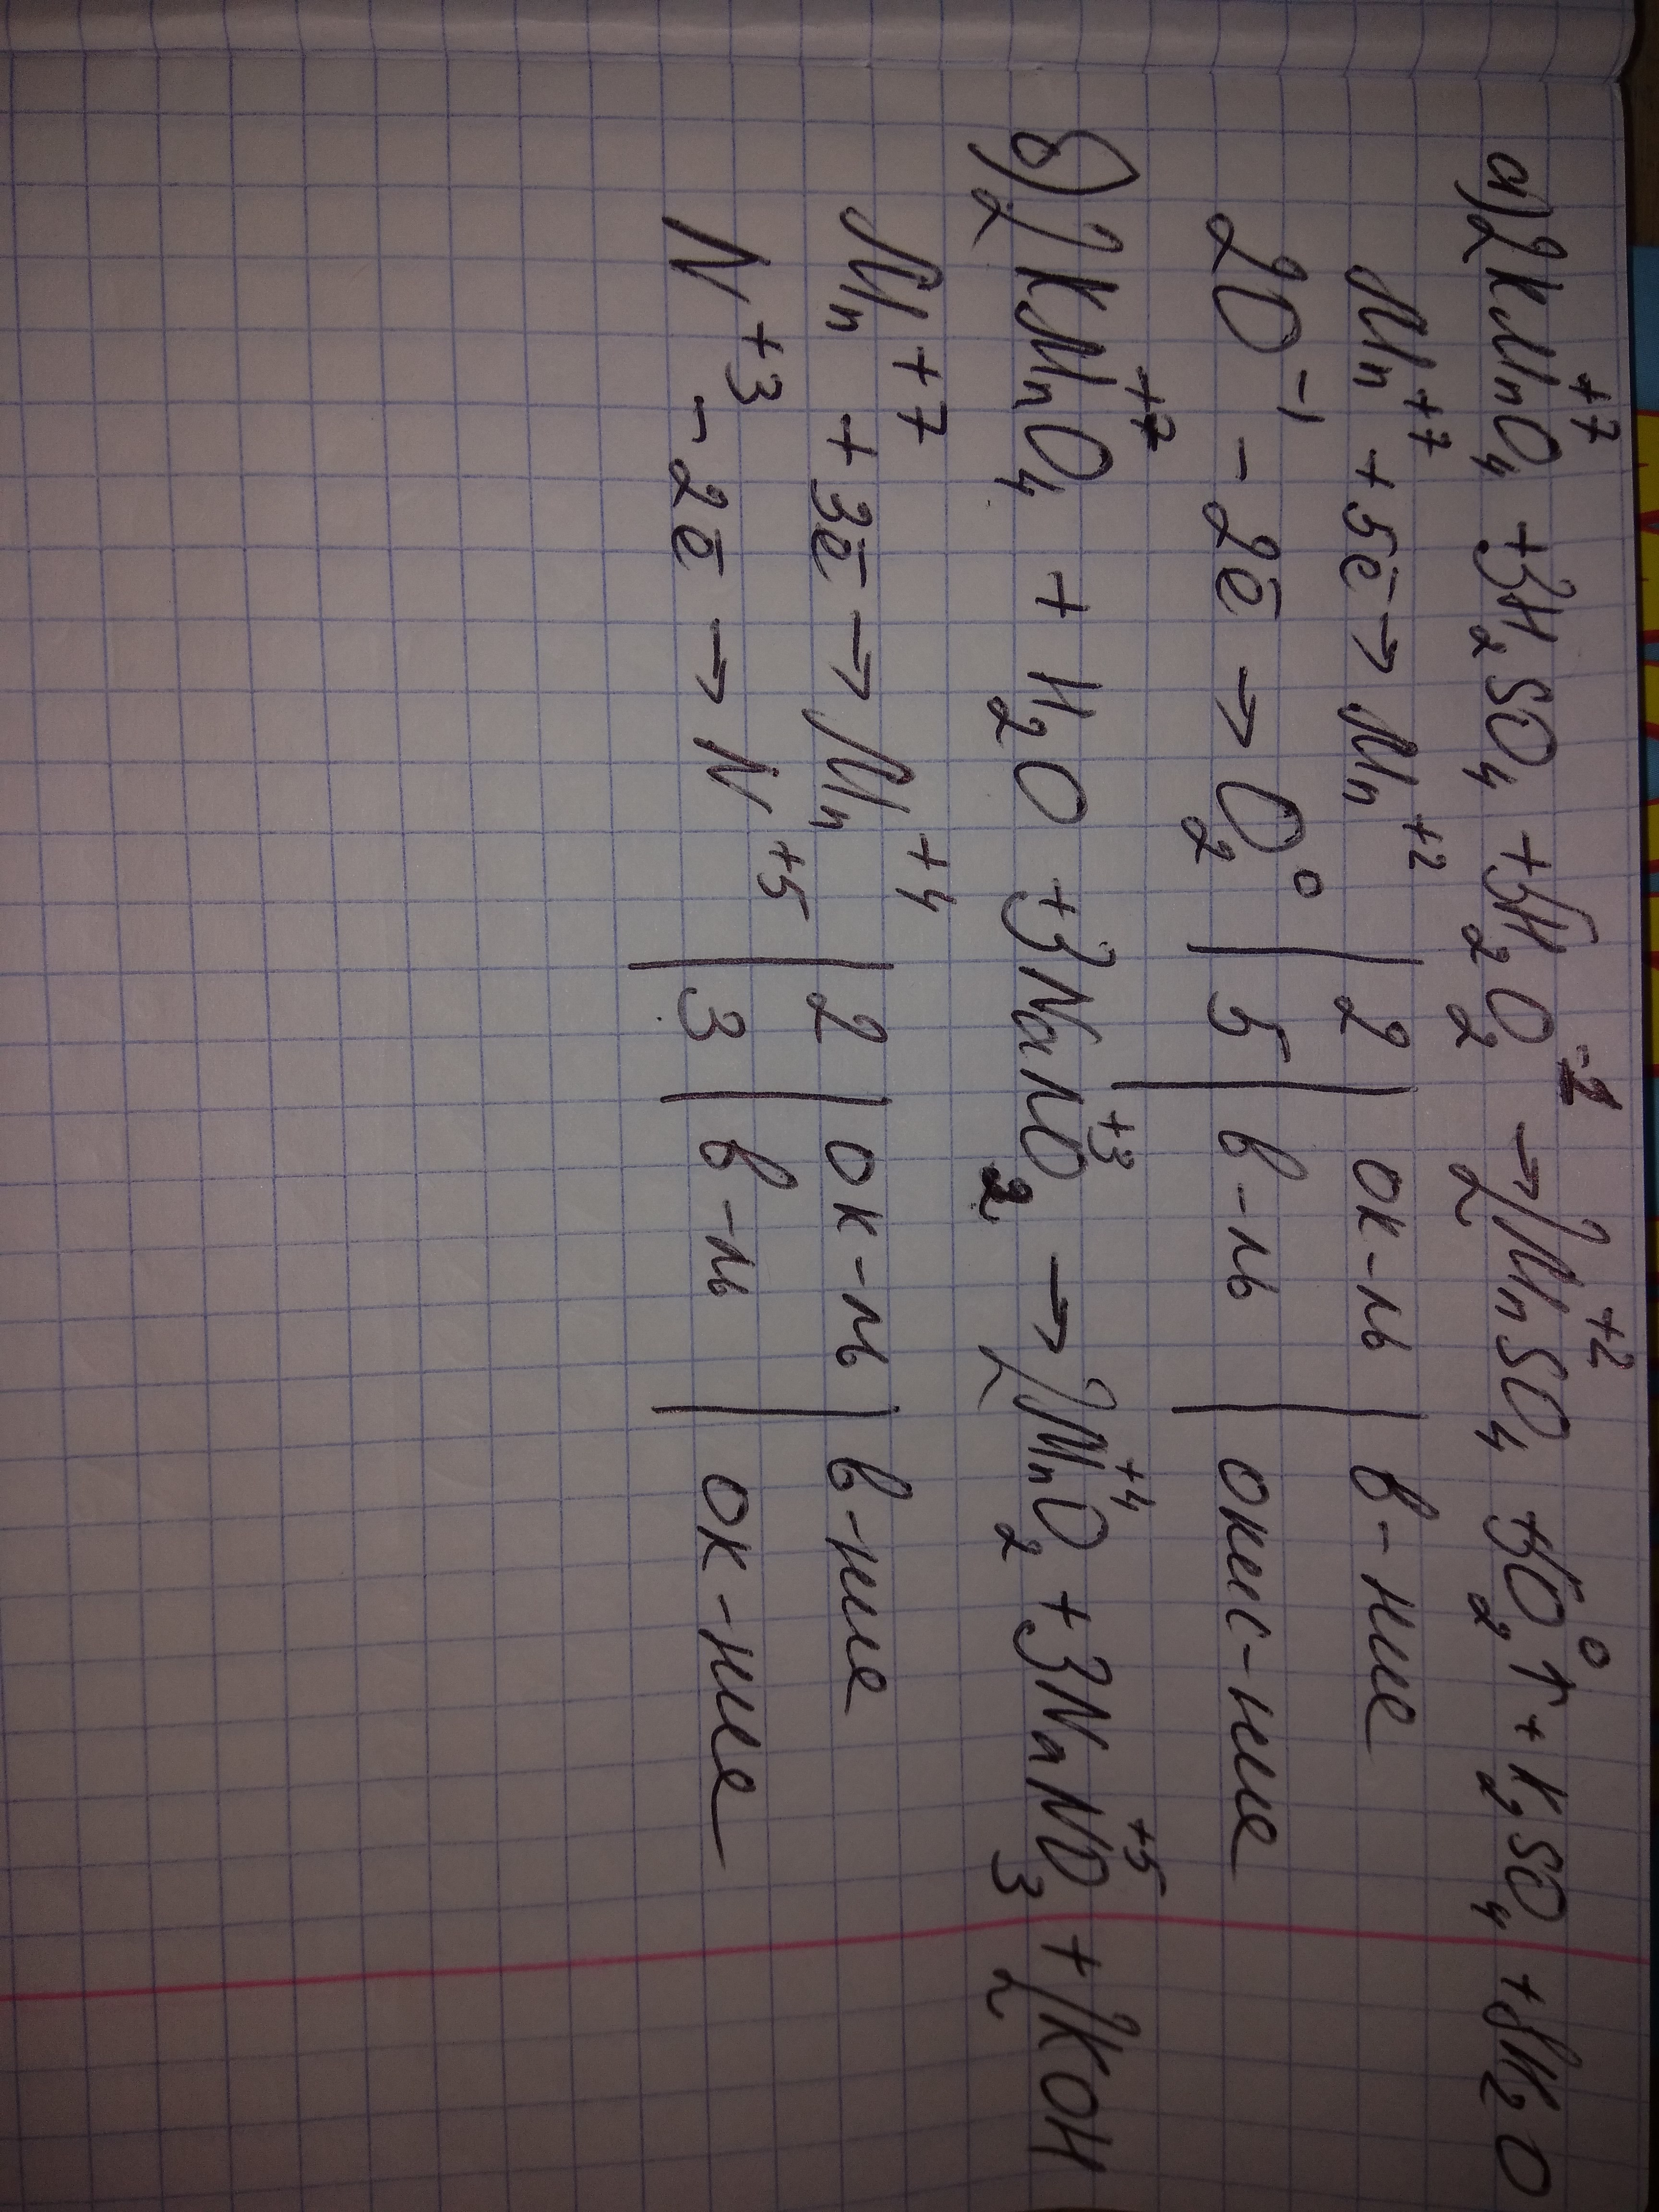 а) 2KMn⁺⁷O₄ + 3H₂SO₄ + 5H₂O₂⁻¹ → 2Mn⁺²SO₄ + 5O₂⁰↑ + K₂SO₄ + 8H₂O
Mn⁺⁷ + 5ē → Mn⁺² | 2 | ок-ль | в-ние
2O⁻¹ - 2ē → O₂⁰ | 5 | в-ль | окис-ние
б) 2KMn⁺⁷O₄ + H₂O + 3NaN⁺³O₂ → 2Mn⁺⁴O₂ + 3NaN⁺⁵O₃ + 2KOH
Mn⁺⁷ + 3ē → Mn⁺⁴ | 2 | ок-ль | в-ние
N⁺³ - 2ē → N⁺⁵ | 3 | в-ль | ок-ние